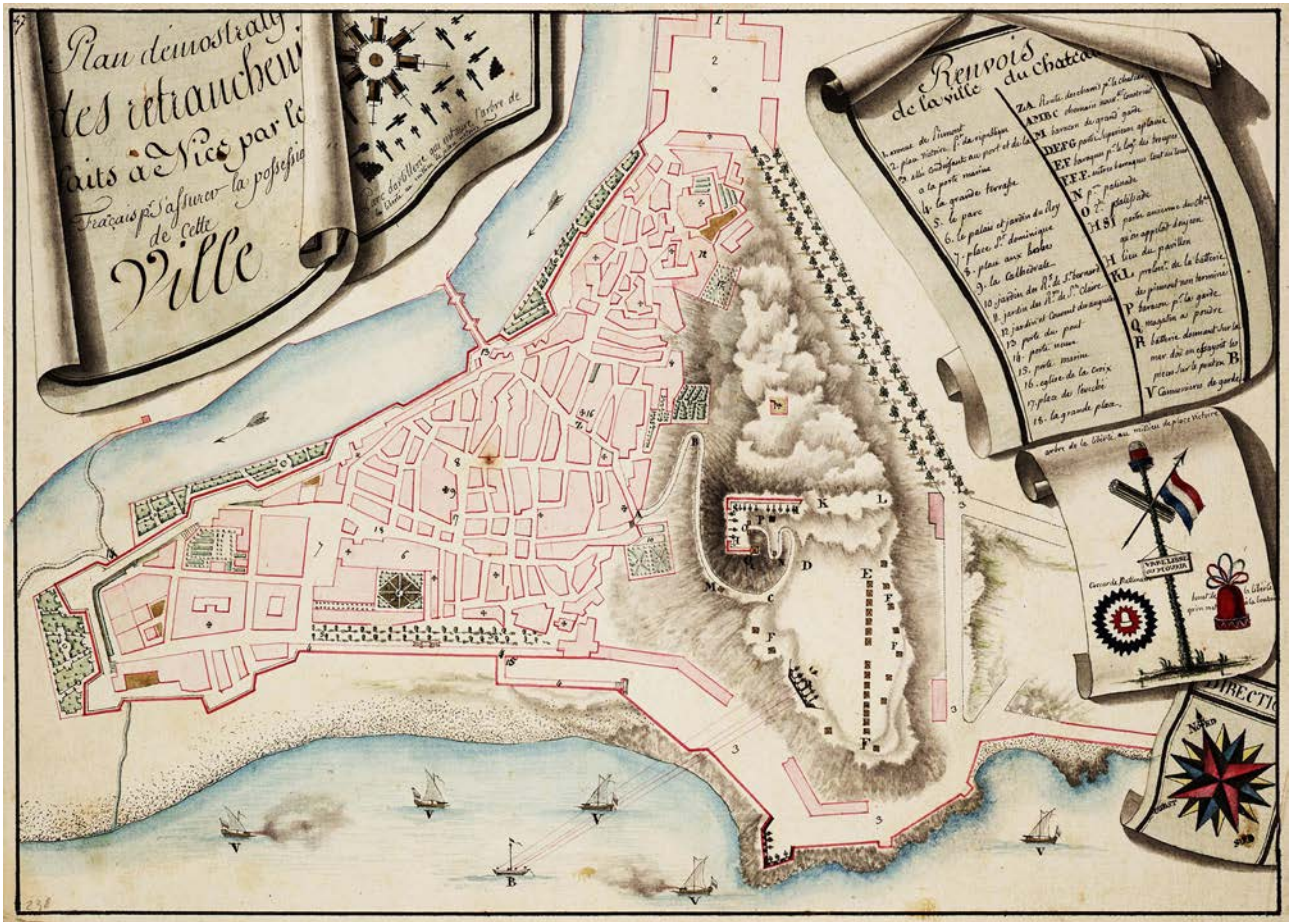 47
Plan démostratif
des retranchem
faits à Nice par les
Français pr. s'assurer la possession
de cette
Ville
Parc d'artillerie qui entoure l'arbre de
la liberté
Renvois
de la ville du chateau
1. avenue de Piemont
2. place victoire, pte. de république
3. allée conduisante au port et de la
a la porte marine
4. la grande terrasse
5. le parc
6. le palais et jardin du Roy
7. place St. dominique
8. place aux herbes
9. la Cathédrale
10. jardin des Rs. de St. bernard
11. jardin des Rs. de Ste. Claire
12. jardin et Couvent des augustins
13. porte du pont
14. porte neuve
15. porte marine
16. eglise de la Croix
17. place de l'eveché
18. la grande place
ZA Route des chars pr. le chateau
AMBC chemain nouvt. Construit
M baracon de grand garde
DEFG partie superieure aplanie
EF baraques pr. le logt. des troupes
F.F.F. autres baraques
N pre. palissade
O 2e. palissade
HSI partie ancienne du chau.
qu'on appeloit donjeon
H lieu du pavillon
KL prolont. de la batterie
de piemont non terminée
P baracon pr. la garde
Q magasin a poudre
R batterie donnant sur la
mer, d'où on essayoit les
pieces sur le ponton B
V Cannonieres de garde
arbre de la liberté au milieu de place Victoire
VIVRE LIBRE
OU MOURIR
Cocarde Nationale
bonet de la liberté
qu'on met à la boutonniere
DIRECTI
NORD
OUEST
SUD
1
2
3
13
12
14
16
Z
B
8
9
A
7
18
6
7
10
K
L
S
H
O
P
I
Q
N
D
M
C
E
F
F
F
F
3
3
15
4
3
3
V
V
V
B
V
V
238